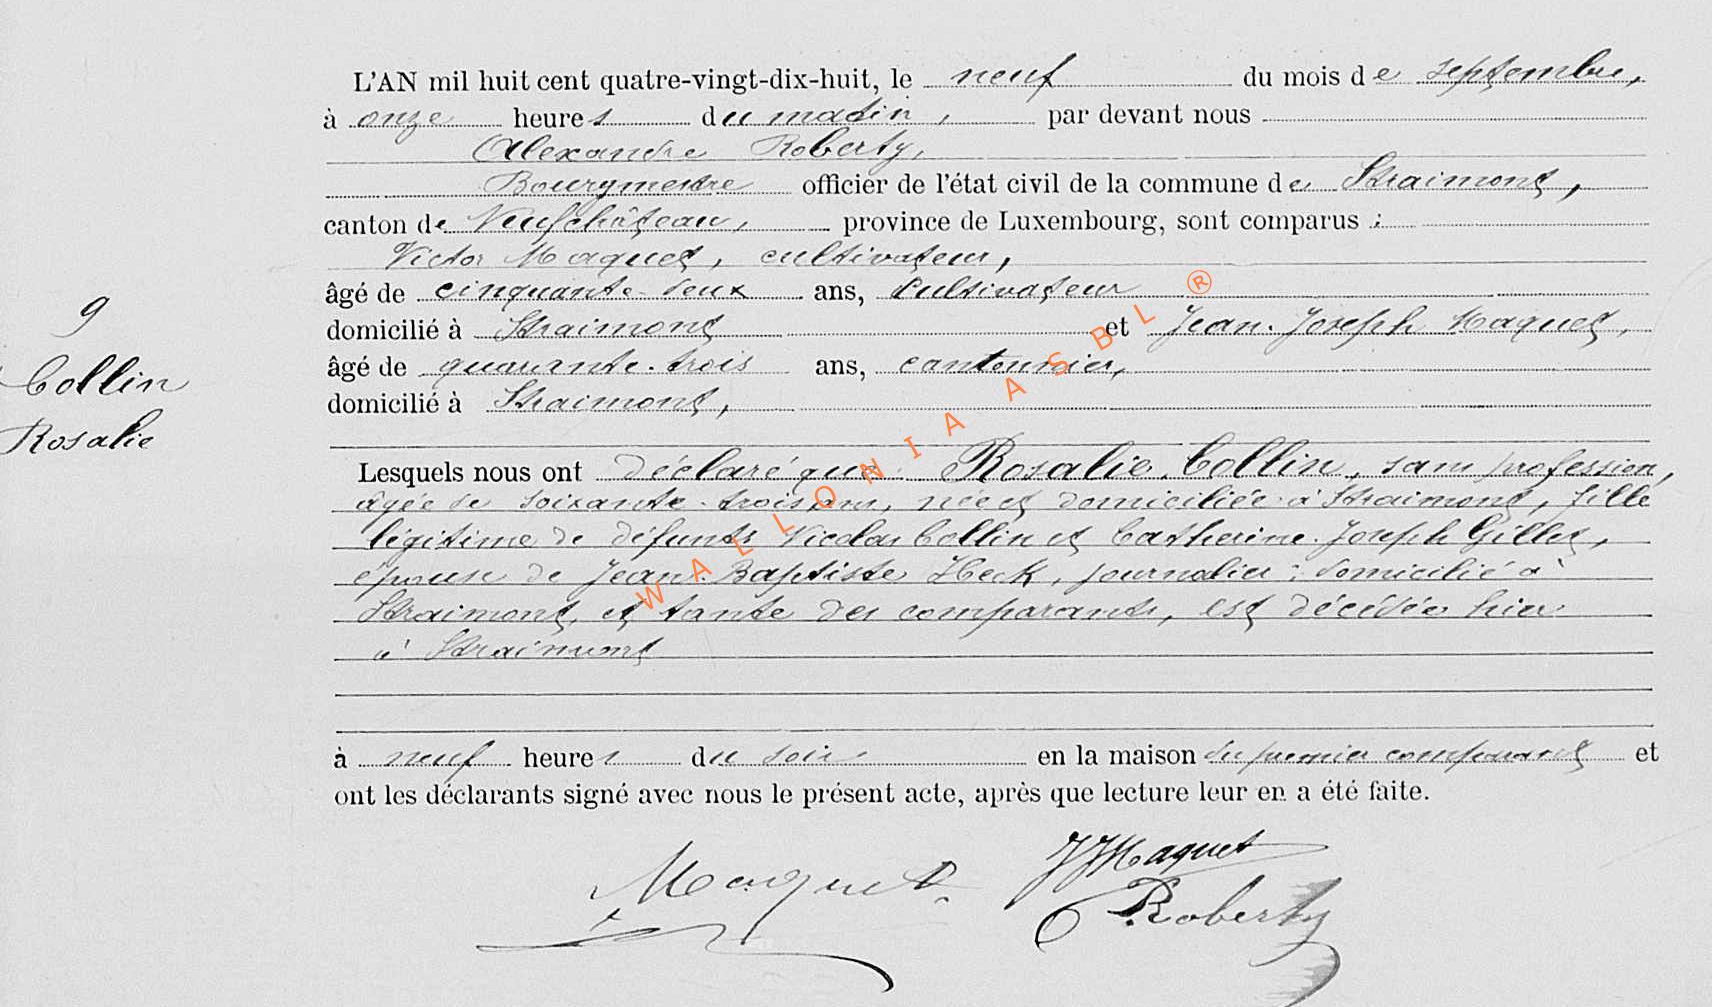 L'AN mil huit cent quatre-vingt-dix-huit, le neuf du mois de septembre,
à onze heures du matin, par devant nous
Alexandre Roberty,
Bourgmestre officier de l'état civil de la commune de Straimont,
canton de Neufchâteau, province de Luxembourg, sont comparus :
Victor Maquet, cultivateur,
âgé de cinquante-deux ans, cultivateur
domicilié à Straimont et Jean-Joseph Maquet,
âgé de quarante-trois ans, cantonnier,
domicilié à Straimont,
9
Collin
Rosalie
Lesquels nous ont déclaré que Rosalie Collin, sans profession,
âgée de soixante-trois ans, née et domiciliée à Straimont, fille
légitime de défunts Nicolas Collin et Catherine-Joseph Gillet,
épouse de Jean-Baptiste Heck, journalier domicilié à
Straimont, et tante des comparants, est décédée hier
à Straimont
à neuf heures du soir en la maison du premier comparant et
ont les déclarants signé avec nous le présent acte, après que lecture leur en a été faite.
Maquet
JJMaquet
Roberty
WALLONIA ASBL ®